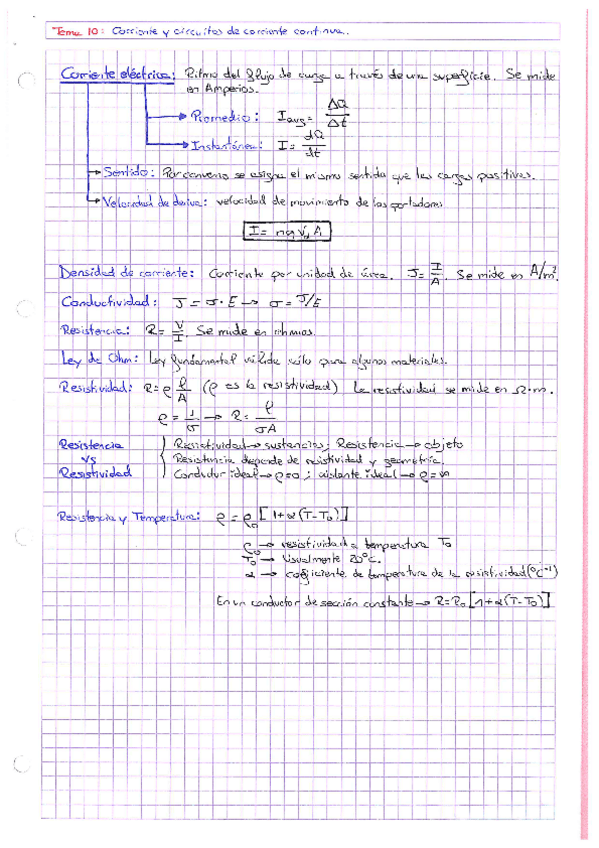 Tema 10: Corriente y circuitos de corriente continua.
Corriente eléctrica: Ritmo del flujo de carga a través de una superficie. Se mide
en Amperios.
Promedio: I_avg = ΔQ/Δt
Instantánea: I = dQ/dt
Sentido: Por convenio se asigna el mismo sentido que las cargas positivas.
Velocidad de deriva: velocidad de movimiento de los portadores
I = nqv_d A
Densidad de corriente: Corriente por unidad de área. J = I/A. Se mide en A/m².
Conductividad: J = σ·E → σ = J/E
Resistencia: R = V/I. Se mide en ohmios.
Ley de Ohm: Ley fundamental válida sólo para algunos materiales.
Resistividad: R = ρ ℓ/A (ρ es la resistividad) La resistividad se mide en Ω·m.
ρ = 1/σ → R = ℓ/σA
Resistencia vs Resistividad
Resistividad → sustancias; Resistencia → objeto
Resistencia depende de resistividad y geometría.
Conductor ideal → ρ=0; aislante ideal → ρ=∞
Resistencia y Temperatura: ρ = ρ₀[1+α(T-T₀)]
ρ₀ → resistividad a temperatura T₀
T₀ → Usualmente 20°C.
α → coeficiente de temperatura de la resistividad (°C⁻¹)
En un conductor de sección constante → R=R₀[1+α(T-T₀)]